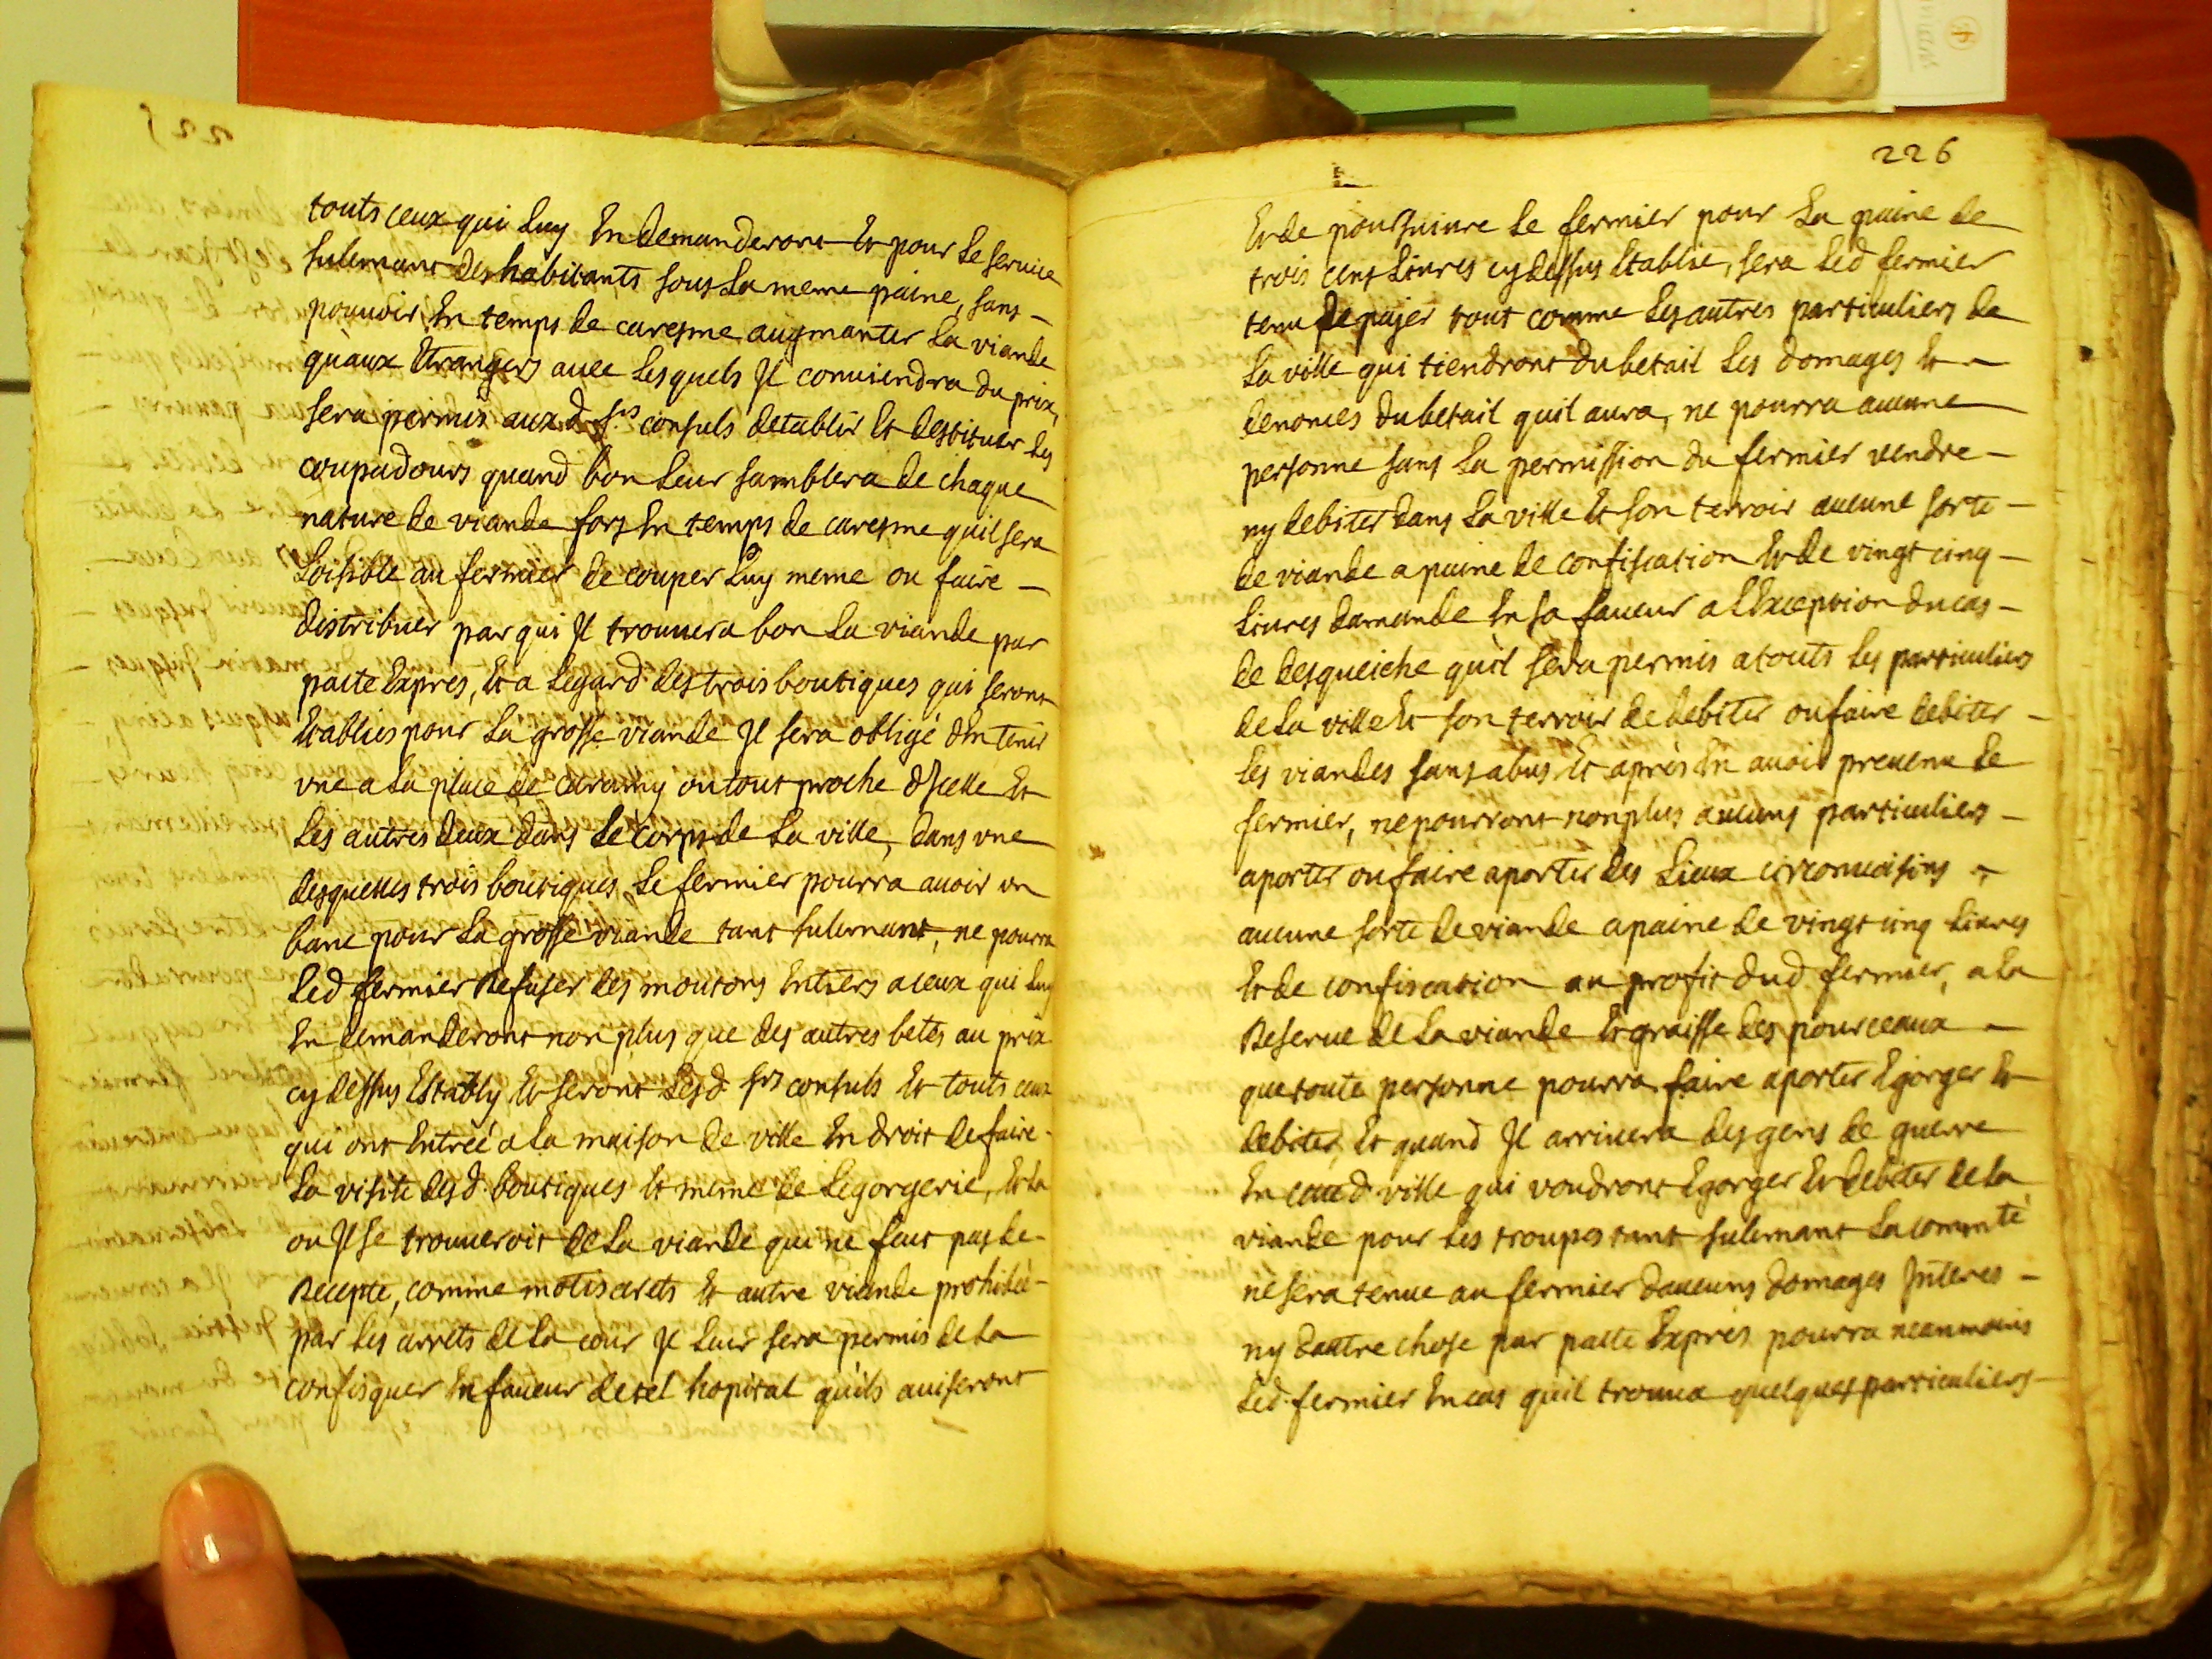 touts ceux qui luy En demanderont Et pour le service
sulemant des habitants sous la meme paine, sans
pouvoir En temps de caresme augmanter la viande
qu'aux Etrangers avec lesquels Il conviendra du prix,
sera permis aux d. srs consuls detablir Et destituer les
coupadours quand bon leur samblera de chaque
nature de viande fors En temps de caresme quil sera
loisible au fermier de couper luy meme ou faire
distribuer par qui Il trouvera bon la viande par
pacte Expres, Et a legard des trois boutiques qui seront
Etablies pour la grosse viande Il sera obligé d'En tenir
vne a la place de caramy ou tout proche d'Icelle Et
les autres deux dans le corps de la ville, dans vne
desquelles trois boutiques le fermier pourra avoir un
banc pour la grosse viande tant sulemant, ne pourra
led fermier Refuser des moutons Entiers a ceux qui luy
En demanderont non plus que des autres betes au prix
cy dessus Estably Et seront lesd. srs consuls Et touts ceux
qui ont Entrée a la maison de ville En droit de faire
la visite desd. boutiques Et meme de legorgerie, Et la
ou Il se trouveroit de la viande qui ne faut pas de
Recepte, comme Et autre viande prohibée
par les arrets de la cour Il leur sera permis de la
confisquer En faveur de tel hopital quils aviseront
226
Et de poursuivre le fermier pour la paine de
trois cens livres cy dessus Etablie, sera led fermier
tenu de païer tout comme les autres particuliers de
la ville qui tiendront du betail les domages Et
denonces du betail quil aura, ne pourra aucune
personne sans la permission du fermier vendre
ny debiter dans la ville Et son terroir aucune sorte
de viande a paine de confiscation Et de vingt cinq
livres damande En sa faveur a l'Exception du cas
de desqueiche qu'il sera permis a touts les particuliers
de la ville Et son terroir de debiter ou faire debiter
les viandes sans abus Et après En avoir prevenu le
fermier, ne pourront non plus aucuns particuliers
aporter ou faire aporter des lieux circonvoisins
aucune sorte de viande a paine de vingt cinq livres
Et de confiscation au profit dud. fermier, a la
Reserve de la viande Et graisse des pourceaux
que toute personne pourra faire aporter Egorger Et
debiter, Et quand Il arrivera des gens de guerre
En d. ville qui voudront Egorger Et debiter de la
viande pour les troupes tant sulemant la commté
ne sera tenue au fermier daucuns domages Interes
ny dautre chose par pacte Exprés pourra neanmoins
led. fermier En cas quil trouva quelques particuliers